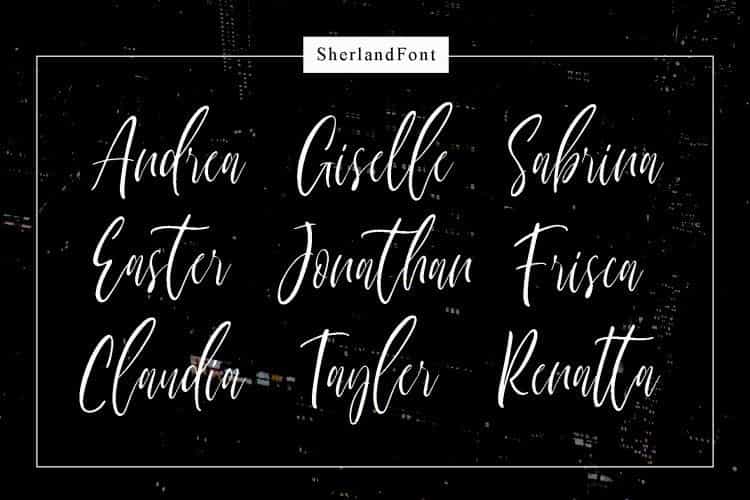 SherlandFont
Andrea Giselle Sabrina
Easter Jonathan Frisca
Claudia Tayler Renatta